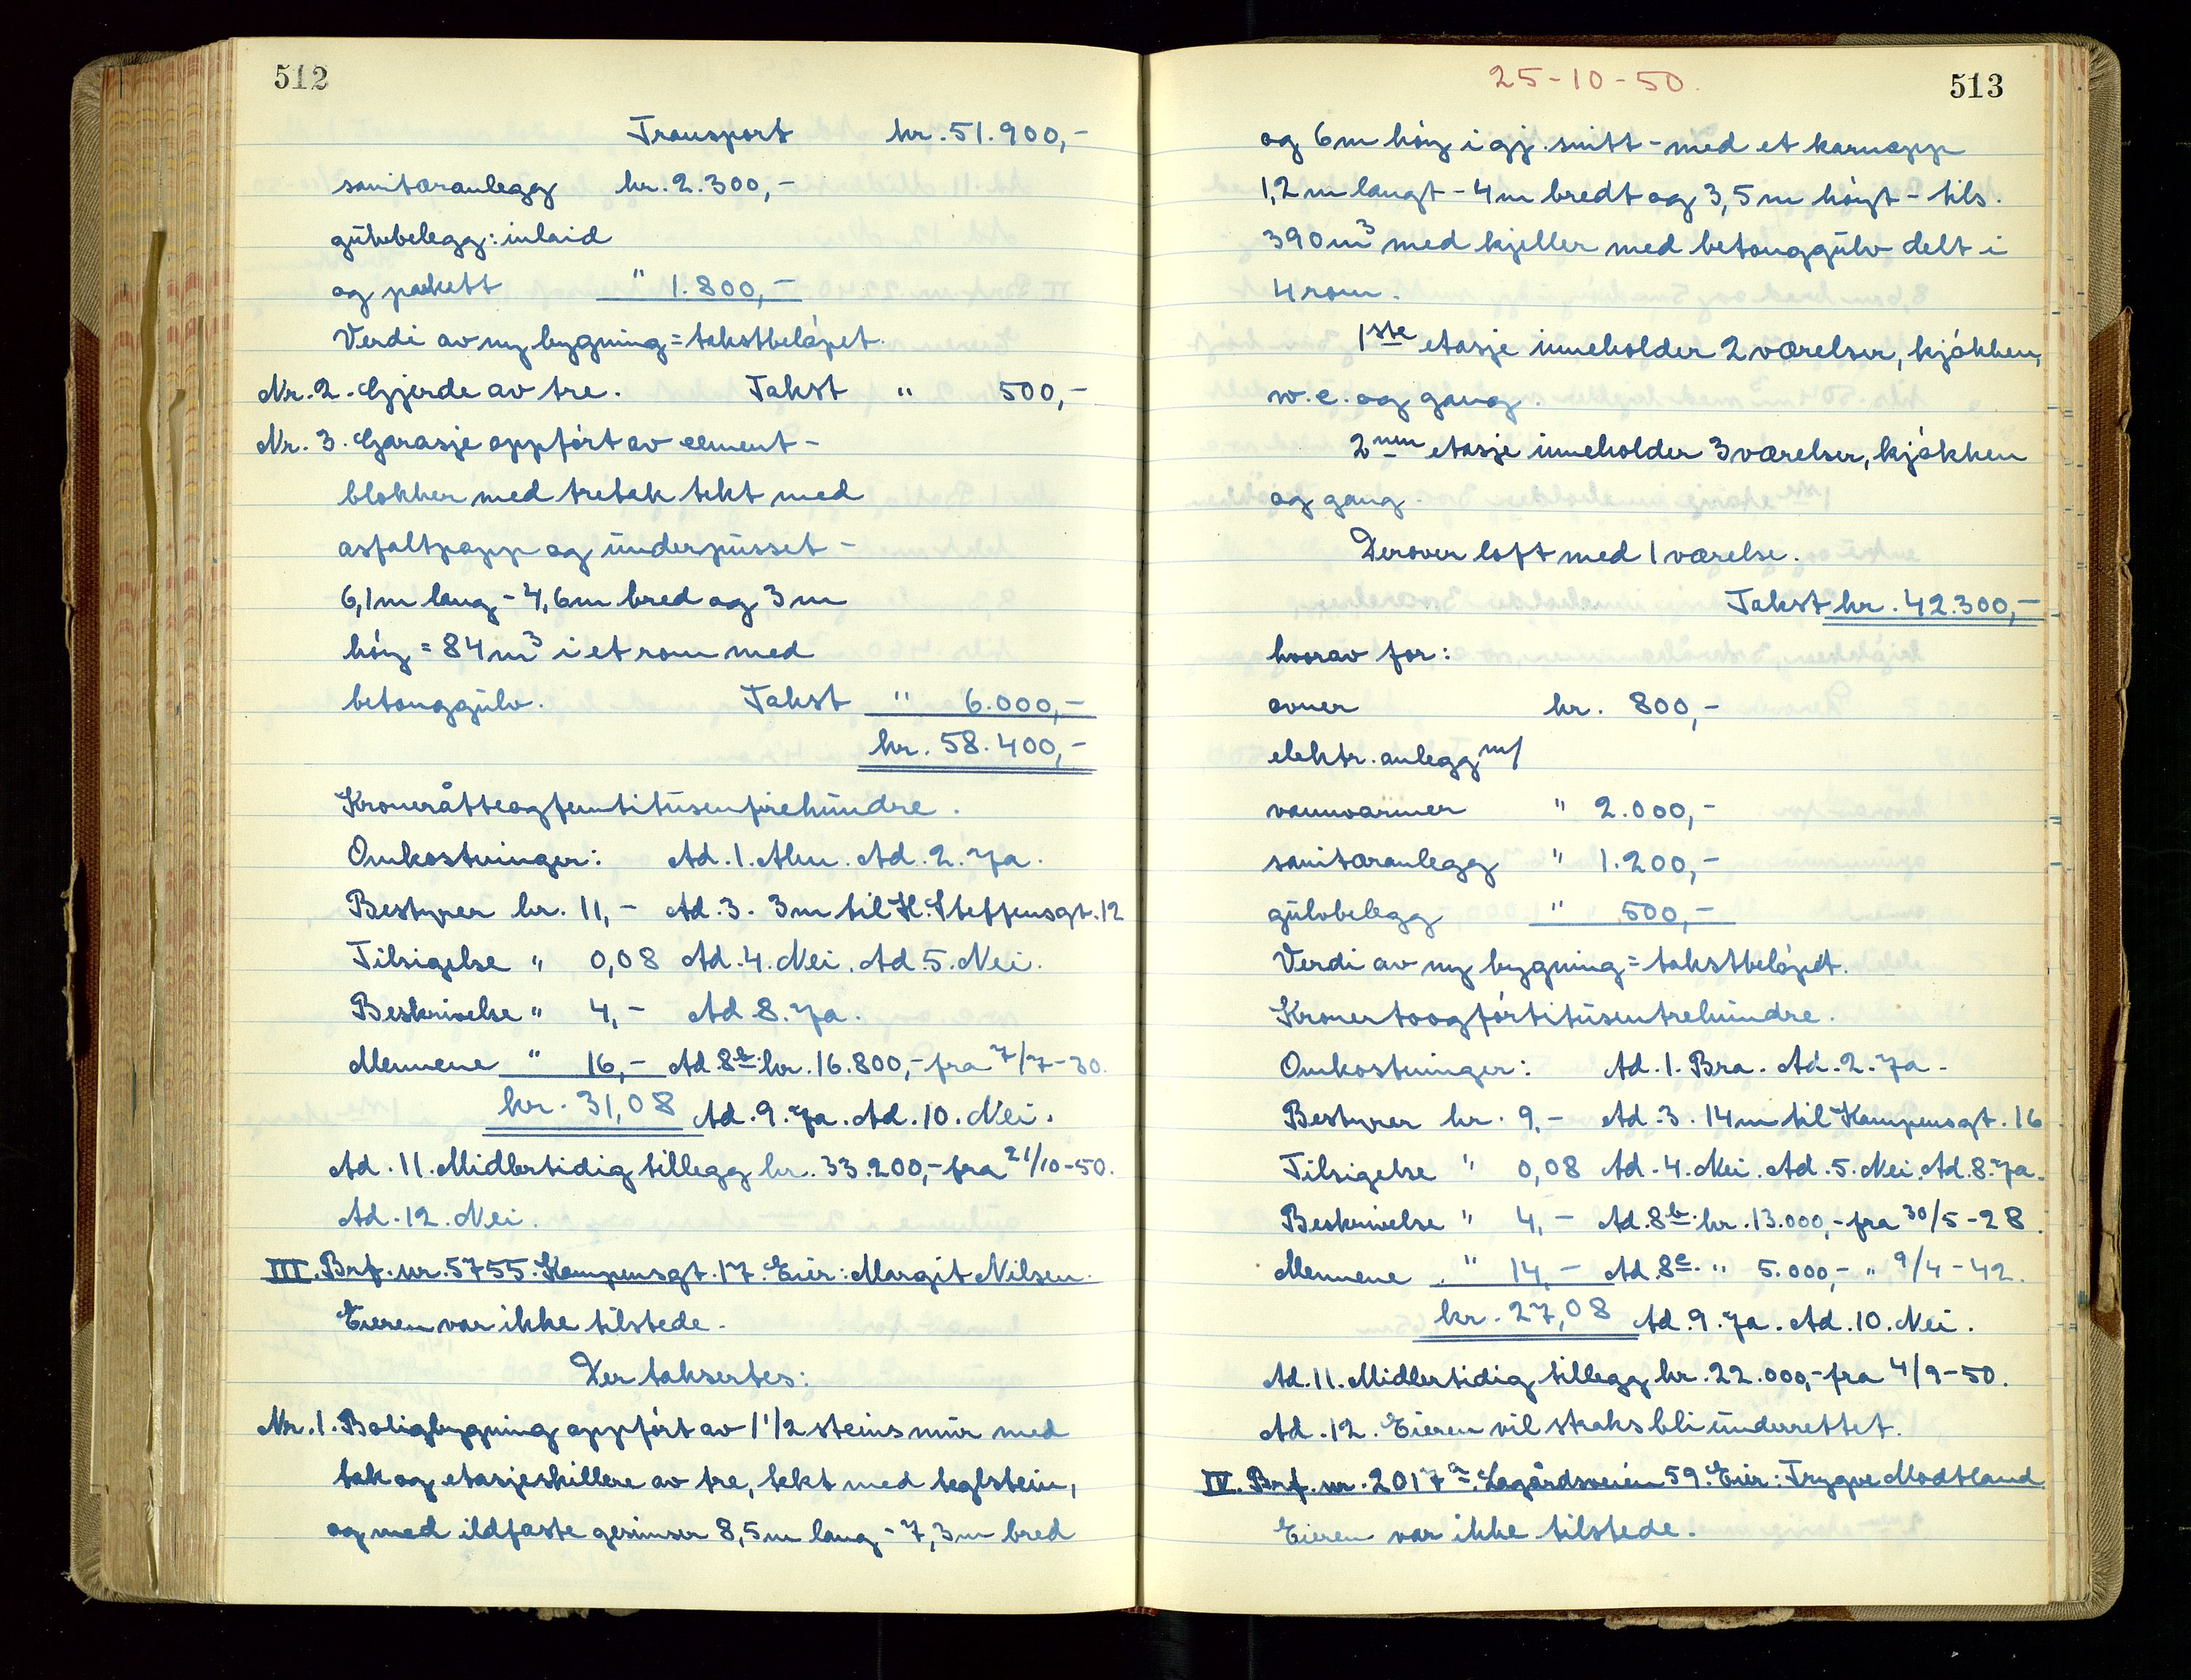 512
Transport kr. 51.900,-
sanitæranlegg kr. 2.300,-
gulvbelegg: inlaid
og parkett " 1.800,-
Verdi av ny bygning = takstbeløpet.
Nr. 2. Gjerde av tre. Takst " 500,-
Nr. 3. Garasje oppført av cement-
blokker med tretak tekt med
asfaltpapp og underpusset -
6,1 m lang - 4,6 m bred og 3 m
høy = 84 m³ i et rom med
betonggulv. Takst " 6.000,-
kr. 58.400,-
Kroneråtteogfemtitusenfirehundre.
Omkostninger: Ad. 1. Alm. Ad. 2. Ja.
Bestyrer kr. 11,- Ad. 3. 3 m til H. Steffensgt. 12
Tilsigelse " 0,08 Ad. 4. Nei. Ad. 5. Nei.
Beskrivelse " 4,- Ad 8. Ja.
Mennene " 16,- Ad 8b. kr. 16.800,- fra 7/7-30.
kr. 31,08 Ad. 9. Ja. Ad. 10. Nei.
Ad. 11. Midlertidig tillegg kr. 33.200,- fra 21/10-50.
Ad. 12. Nei.
III. Brf. nr. 5755. Kampensgt. 17. Eier: Margit Nilsen.
Eieren var ikke tilstede.
Der taksertes:
Nr. 1. Boligbygning oppført av 1 1/2 steins mur med
tak og etasjeskillere av tre, tekt med teglstein,
og med ildfaste gesimser 8,5 m lang - 7,3 m bred
25-10-50.
513
og 6 m høy i gj. snitt - med et karnapp
1,2 m langt - 4 m bredt og 3,5 m høyt - tils.
390 m³ med kjeller med betonggulv delt i
4 rom.
1ste etasje inneholder 2 værelser, kjøkken,
w.c. og gang.
2nen etasje inneholder 3 værelser, kjøkken
og gang.
Derover loft med 1 værelse.
Takst kr. 42.300,-
hvorav for:
ovner kr. 800,-
elektr. anlegg m/
vannvarmer " 2.000,-
sanitæranlegg " 1.200,-
gulvbelegg " 500,-
Verdi av ny bygning = takstbeløpet.
Kronertoogførtitusentrehundre.
Omkostninger: Ad. 1. Bra. Ad. 2. Ja.
Bestyrer kr. 9,- Ad. 3. 14 m til Kampensgt. 16
Tilsigelse " 0,08 Ad. 4. Nei. Ad. 5. Nei. Ad. 8. Ja.
Beskrivelse " 4,- Ad. 8b. kr. 13.000,- fra 30/5-28.
Mennene " 14,- Ad 8c. " 5.000,- " 9/4-42.
kr. 27,08 Ad. 9. Ja. Ad. 10. Nei.
Ad. 11. Midlertidig tillegg kr. 22.000,- fra 4/9-50.
Ad. 12. Eieren vil straks bli underrettet.
IV. Brf. nr. 2017a. Lagårdsveien 59. Eier: Trygve Modtland
Eieren var ikke tilstede.